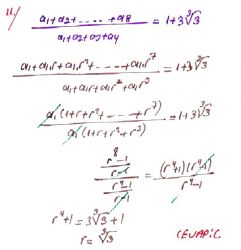 11/
a₁+a₂+.....+a₈ / a₁+a₂+a₃+a₄ = 1+3∛3
a₁+a₁r+a₁r²+----+a₁r⁷ / a₁+a₁r+a₁r²+a₁r³ = 1+3∛3
a₁(1+r+r²+---+r⁷) / a₁(1+r+r²+r³) = 1+3∛3
(r⁸-1 / r-1) / (r⁴-1 / r-1) = (r⁴-1)(r⁴+1) / r⁴-1
r⁴+1 = 3∛3+1
r = ∛3
CEVAP: C